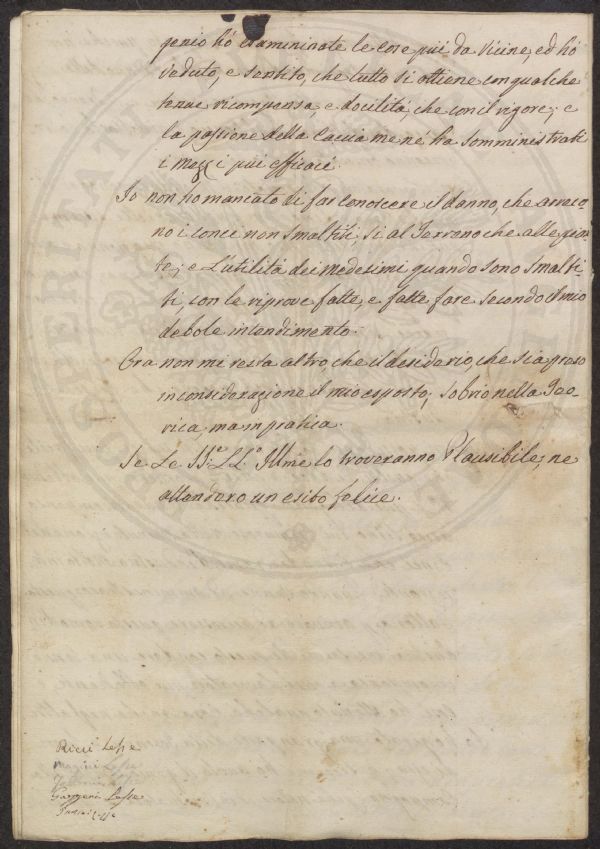 genio hò esaminate le cose più da vicino, ed hò
veduto, e sentito, che tutto si ottiene con qualche
tenue ricompensa, e docilità, che con il rigore; e
la passione della Caccia me nè ha somministrati
i mezzi più efficaci.
Io non ho mancato di far conoscere il danno, che arreca-
no i conci non smaltiti, si al Terreno che alle pian-
te; e L'utilità dei medesimi quando sono smalti-
ti, con le riprove fatte, e fatte fare secondo il mio
debole intendimento.
Ora non mi resta altro, che il desiderio, che sia preso
in considerazione il mio esposto; sobrio nella Teo-
rica, ma in pratica.
Se Le SS.e LL.e Illme lo troveranno Plausibile, ne
attendero un esito felice.
Ricci Lesse
Lesse
Lesse